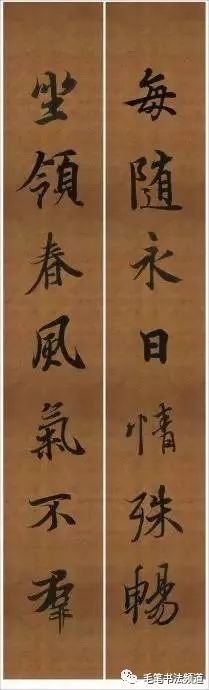 每随永日情殊畅
坐领春风氣不羣
毛笔书法频道